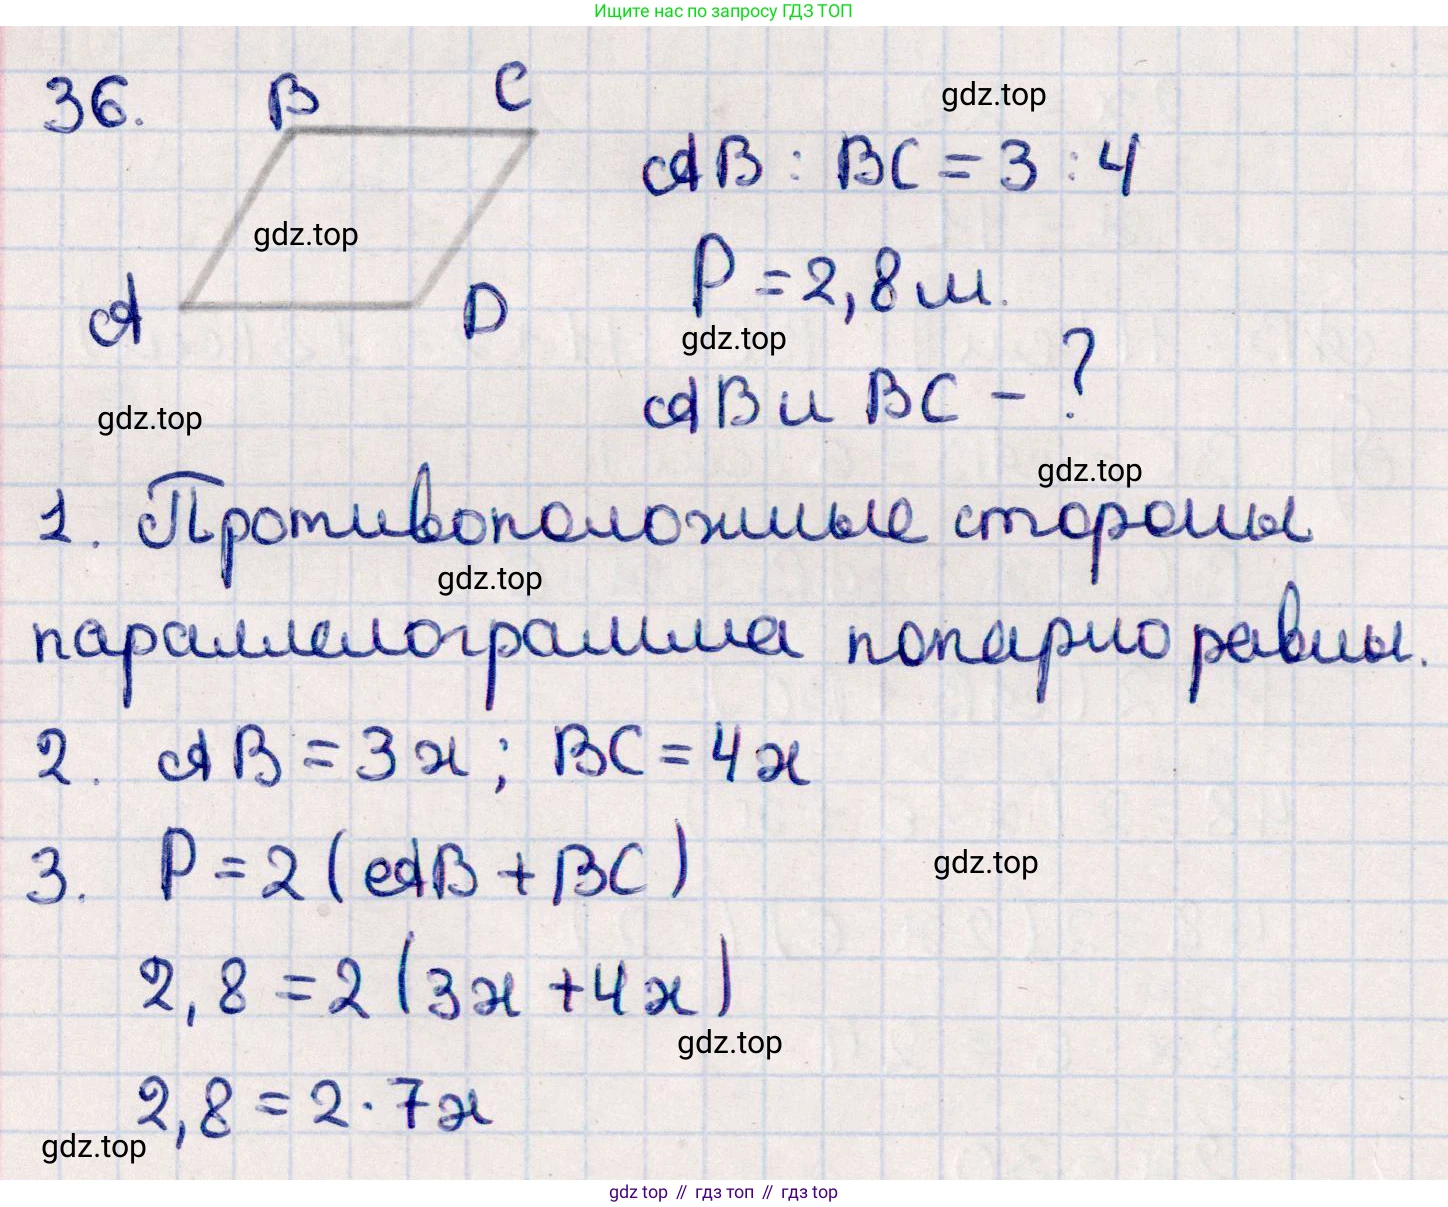 Ищите нас по запросу ГДЗ ТОП
36.
B C
gdz.top
AB : BC = 3 : 4
gdz.top
P = 2,8 м.
A D
gdz.top
AB и BC - ?
gdz.top
gdz.top
1. Противоположные стороны
gdz.top
параллелограмма попарно равны.
2. AB = 3x; BC = 4x
3. P = 2(AB + BC)
gdz.top
2,8 = 2(3x + 4x)
gdz.top
2,8 = 2 · 7x
gdz.top
gdz top // гдз топ // гдз top